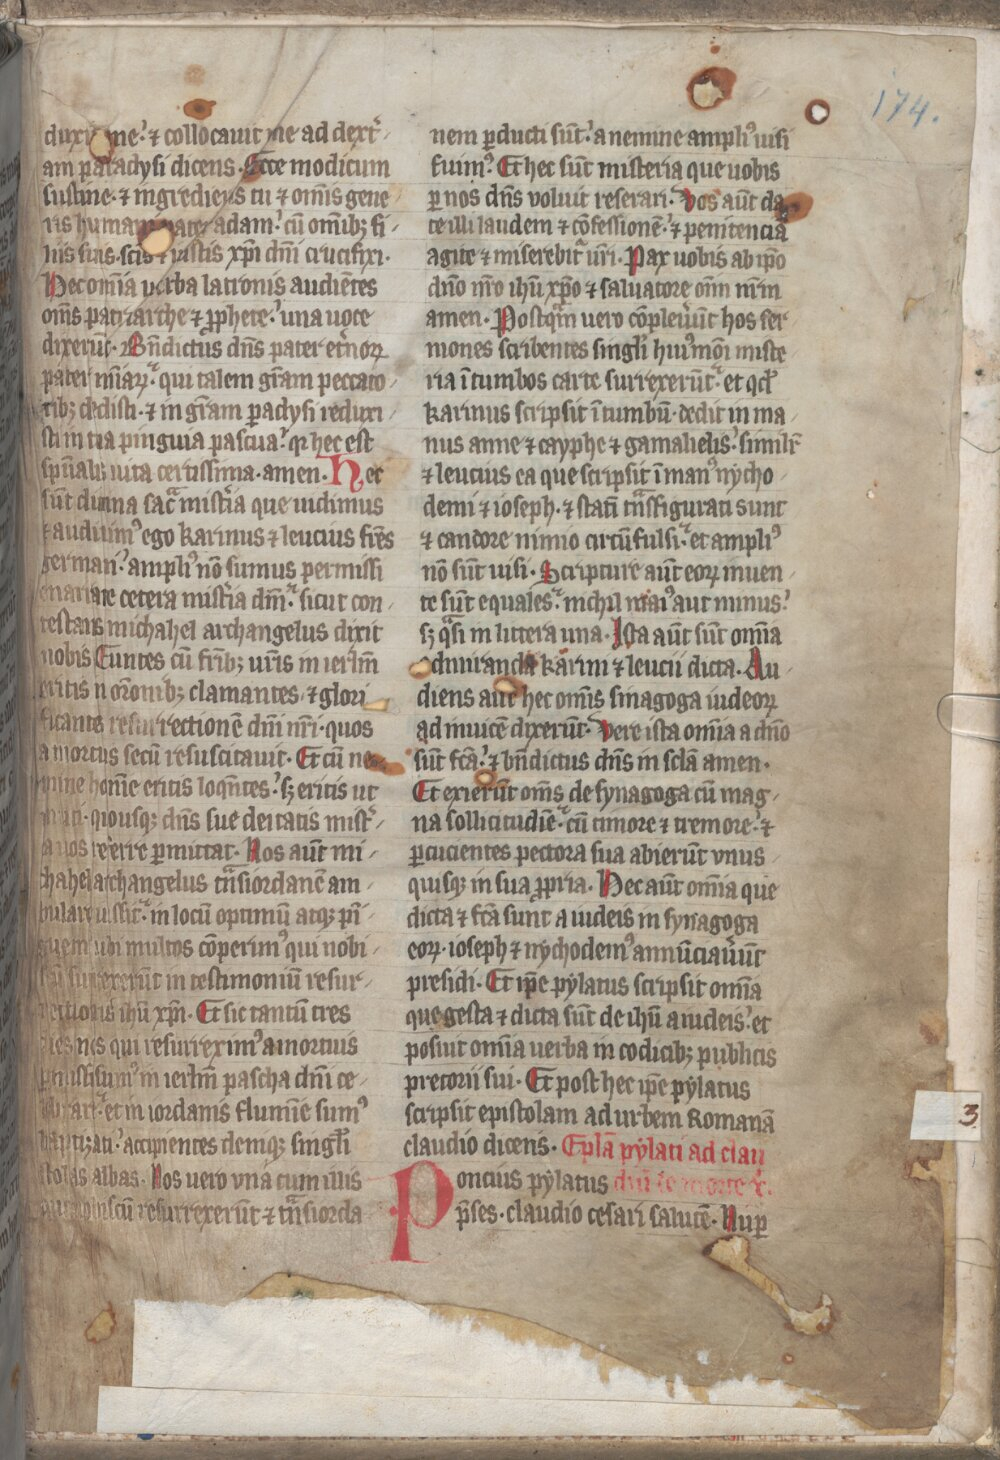 174.
duxit me⁊ collocauit me ad dext̄
am paradysi dicens. Ecce modicum
sustine. ⁊ ingrediens tu ⁊ om̄is gene
ris humani pater adam. cū om̄ibꝫ fi
liis suis. sc̄is ⁊ iustis xp̄i dn̄i crucifixi.
Hec om̄ia verba latronis audiētes
om̄s patriarche ⁊ ꝓphete. una uoce
dixerūt. Bn̄dictus dn̄s pater et̄noꝝ
pater mīaꝝ. qui talem gr̄am peccato
ribꝫ dedisti. ⁊ in gr̄am ꝑadysi reduxi
sti in tua pinguia pascua. qꝛ hec est
sp̄ualis uita certissima. amen. Hec
sūt diuina sac̄ mist̄ia que uidimus
⁊ audiuimꝰ ego karinus ⁊ leucius fr̄es
germani. ampliꝰ nō sumus permissi
enarrare cetera mist̄ia dn̄i. sicut con
testans michahel archangelus dixit
uobis Euntes cū fr̄ibꝫ ur̄is in ierl̄m
eritis in or̄onibꝫ clamantes. ⁊ glori
ficantes resurrectionē dn̄i nr̄i. quos
a mortuis secū resuscitauit. Et cū ne
mine hoīne eritis loq̄ntes. sꝫ eritis ut
muti. qiousqꝫ dn̄s sue deitatis mist̄
a uos referre ꝑmittat. Nos aūt mi
chahel archangelus tn̄siordanē am
bulare iussit. in locū optimū atqꝫ pī
guem ubi multos cōperimꝰ qui nobi
scū surrexerūt in testimoniū resur
rectionis ih̄u xp̄i. Et sic tantū tres
dies nos qui resurreximꝰ a mortuis
ꝑmissi sumꝰ in ierl̄m pascha dn̄i ce
lebrare. et in iordanis flumīe sumꝰ
baptizati. accipientes deniqꝫ singl̄i
stolas albas. Nos uero una cum illis
qui nobiscū resurrexerūt ⁊ tn̄siorda
nem ꝑducti sūt. a nemine ampliꝰ uisi
fuimꝰ. Et hec sūt misteria que uobis
ꝑ nos dn̄s voluit reserari. Vos aūt da
te illi laudem ⁊ cōfessionē. ⁊ penitenciā
agite ⁊ miserebit̄ ur̄i. Pax uobis ab ip̄o
dn̄o nr̄o ih̄u xp̄o ⁊ saluatore om̄ nr̄m
amen. Postq̄m uero cōpleuūt hos ser
mones scribentes singl̄i huiꝰmōi miste
ria ī tumbos carte surrexerūt. et qd̄
karinus scripsit ī tumbū. dedit in ma
nus anne ⁊ cayphe ⁊ gamalielis. simil̄r
⁊ leucius ea que scripsit ī manꝰ nycho
demi ⁊ ioseph. ⁊ statī tn̄sfigurati sunt
⁊ candore nimio circūfulsi. et ampliꝰ
nō sūt uisi. Scripture aūt eoꝝ inuen
te sūt equales. nichil maiꝰ aut minus.
sꝫ q̄si in littera una. Ista aūt sūt om̄ia
admiranda karini ⁊ leucii dicta. Au
diens aūt hec om̄is sinagoga iudeoꝝ
ad inuicē dixerūt. Vere ista om̄ia a dn̄o
sūt fc̄a. ⁊ bn̄dictus dn̄s in scl̄a amen.
Et exierūt om̄s de synagoga cū mag
na sollicitudīe. cū timore ⁊ tremore. ⁊
ꝑcucientes pectora sua abierūt vnus
quisqꝫ in sua ꝓpria. Hec aūt om̄ia que
dicta ⁊ fc̄a sunt a iudeis in synagoga
eoꝝ. ioseph ⁊ nychodemꝰ annūciauūt
presidi. Et ip̄e pylatus scripsit om̄ia
que gesta ⁊ dicta sūt de ih̄u a iudeis. et
posuit om̄ia uerba in codicibꝫ publicis
pretorii sui. Et post hec ip̄e pylatus
scripsit epistolam ad urbem Romanā
claudio dicens. Epl̄a pylati ad clau
Poncius pylatus diū de morte x̄.
p̄ses. claudio cesari salutē. Nuꝑ
3